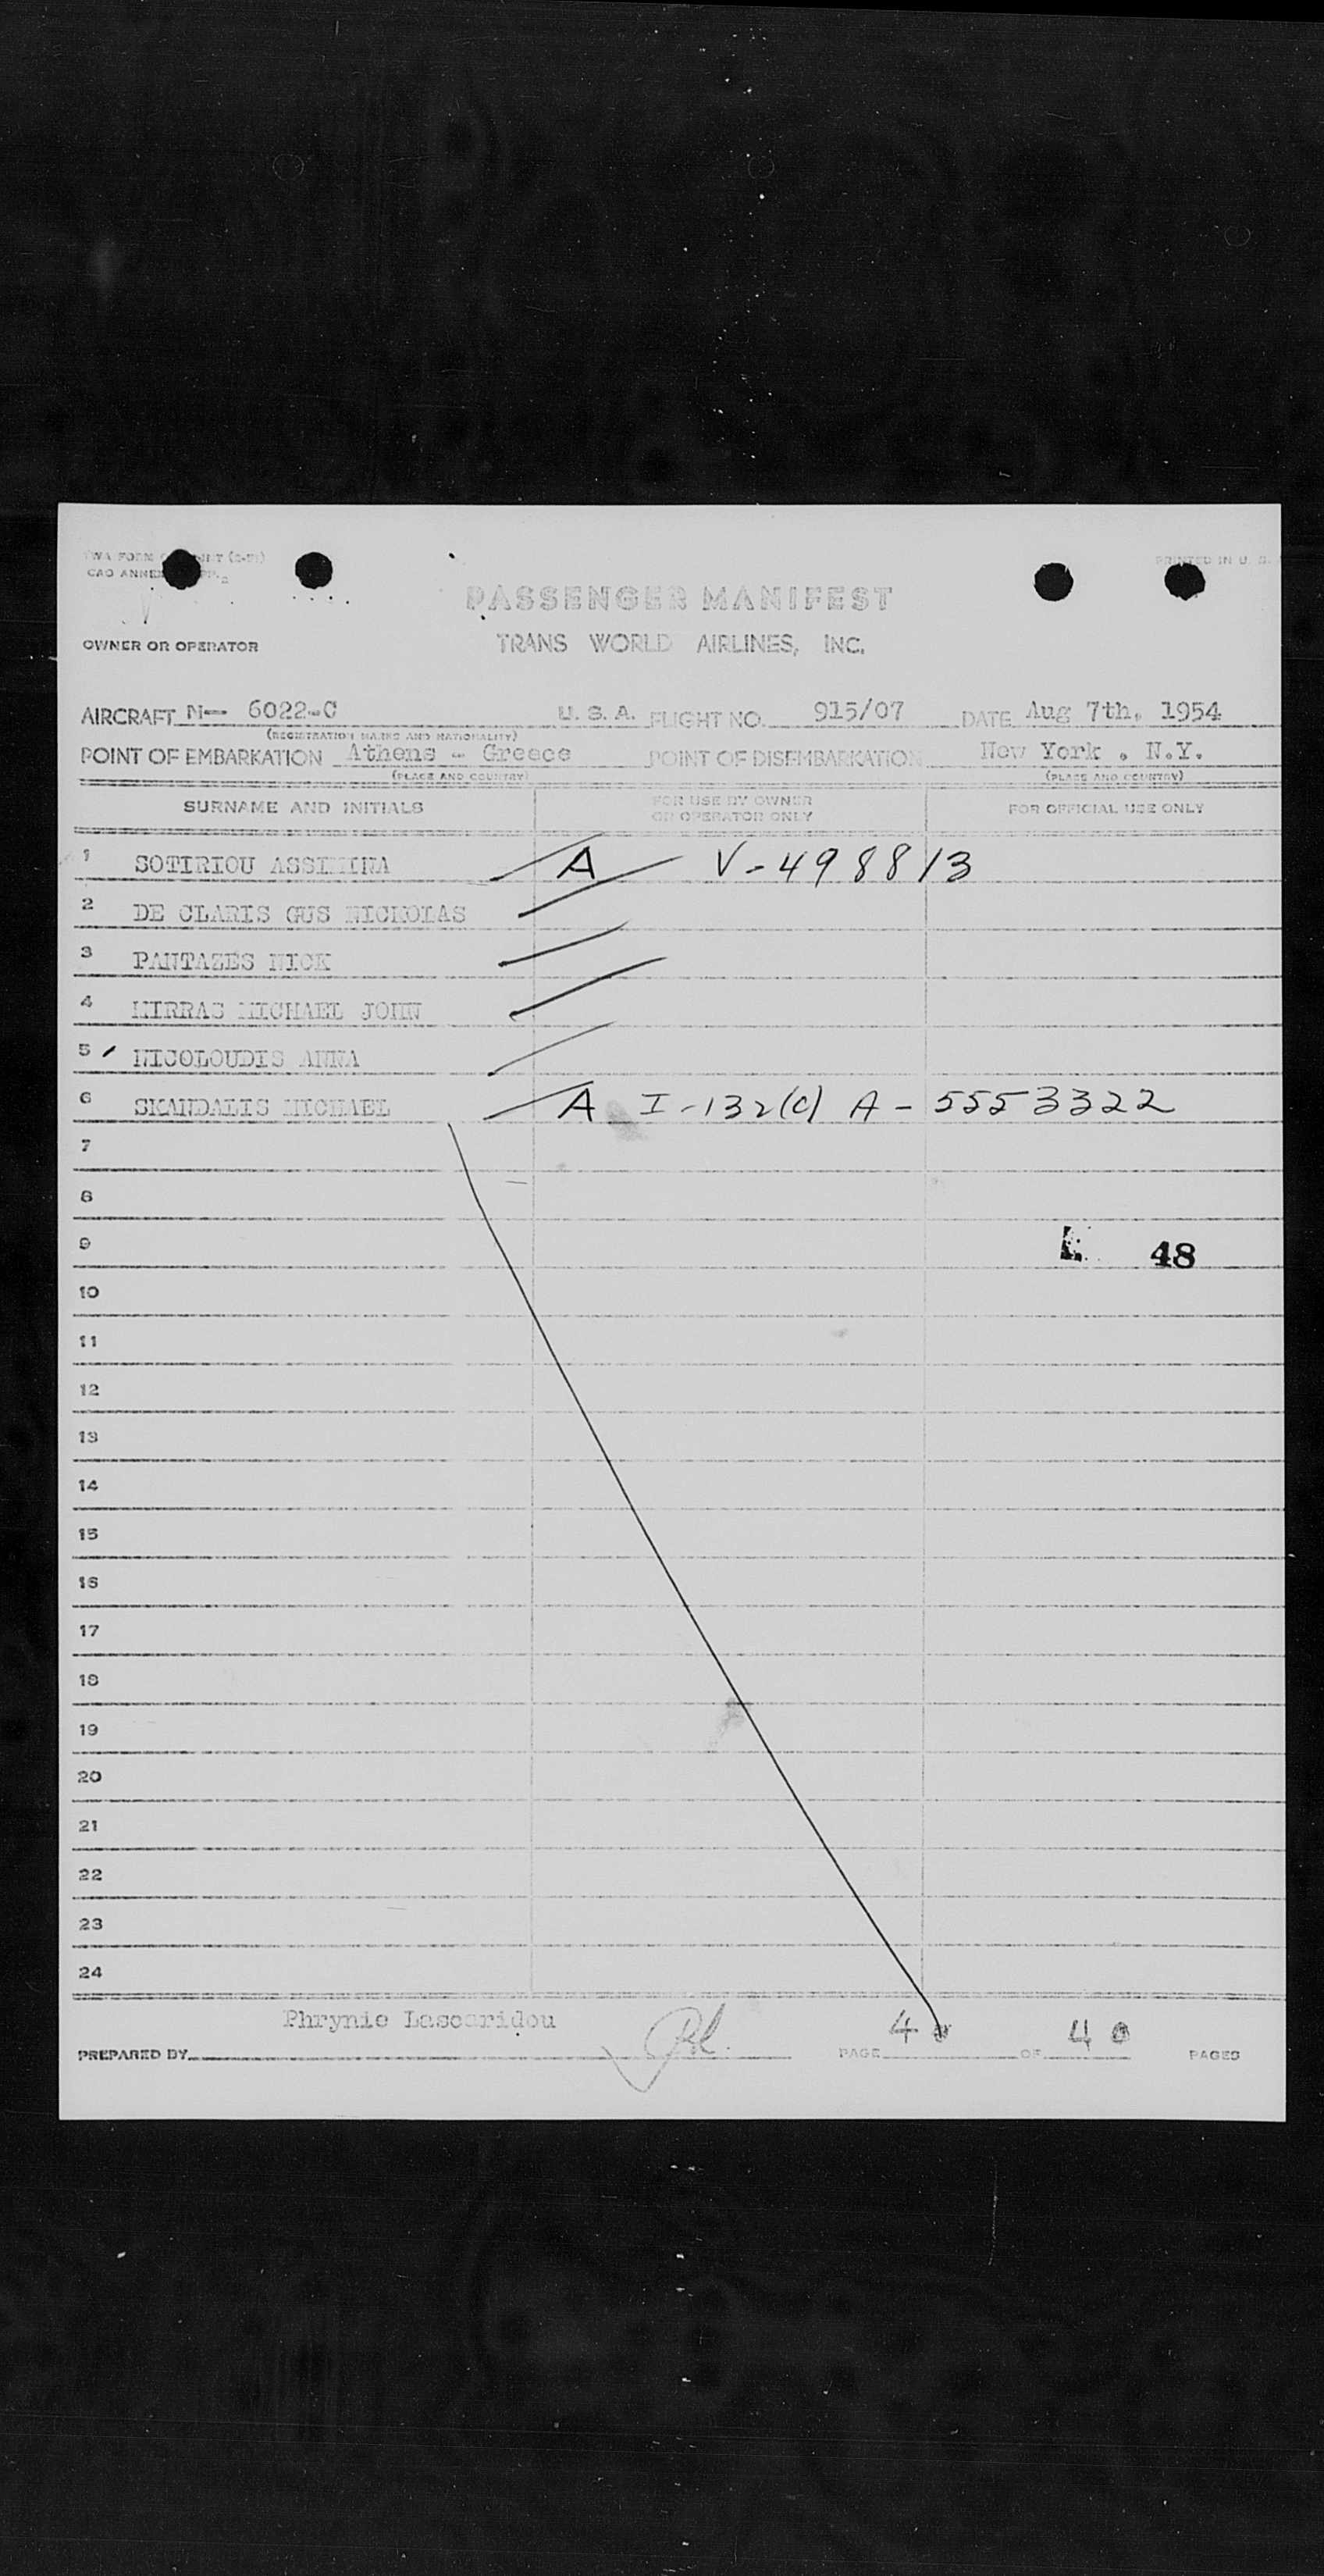 PRINTED IN U. S.
PASSENGER MANIFEST
OWNER OR OPERATOR TRANS WORLD AIRLINES, INC.
AIRCRAFT N- 6022-C U. S. A. FLIGHT NO. 915/07 DATE Aug 7th, 1954
(REGISTRATION MARKS AND NATIONALITY)
POINT OF EMBARKATION Athens - Greece POINT OF DISEMBARKATION New York . N.Y.
(PLACE AND COUNTRY) (PLACE AND COUNTRY)
SURNAME AND INITIALS FOR USE BY OWNER OR OPERATOR ONLY FOR OFFICIAL USE ONLY
1 SOTIRIOU ASSIMINA A V-498813
2 DE CLARIS GUS NICKOLAS
3 PANTAZES NICK
4 MIRRAS MICHAEL JOHN
5 NICOLOUDIS ANNA
6 SKANDALIS MICHAEL A I-132(c) A-5553322
7
8
9 48
10
11
12
13
14
15
16
17
18
19
20
21
22
23
24
Phrynie Lascaridou
PREPARED BY PAGE 4 OF 4 PAGES